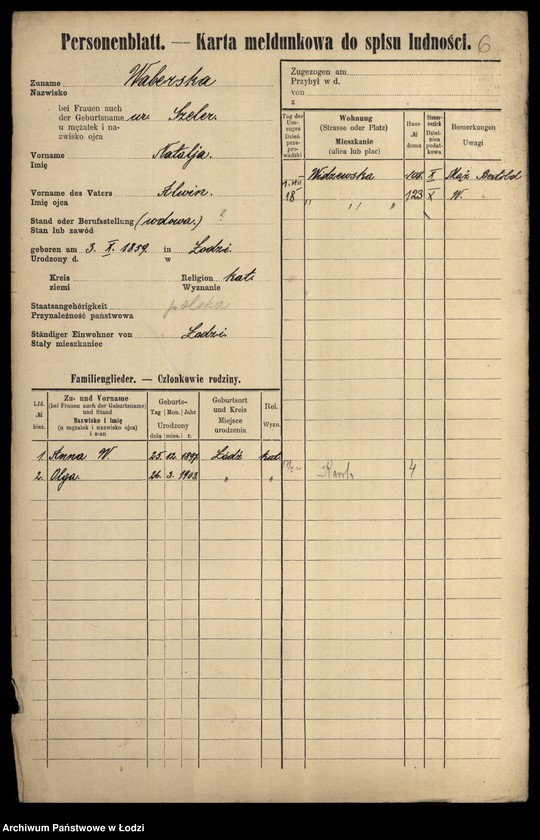 Personenblatt. — Karta meldunkowa do spisu ludności. 6
Zuname Waberska
Nazwisko
bei Frauen auch
der Geburtsname ur. Szeler.
u mężatek i na-
zwisko ojca
Vorname Natalja.
Imię
Vorname des Vaters Alwin.
Imię ojca
Stand oder Berufsstellung (wdowa.) ?
Stan lub zawód
geboren am 3. X. 1859. in Łodzi.
Urodzony d. w
Kreis Religion kat.
ziemi Wyznanie
Staatsangehörigkeit polska
Przynależność państwowa
Ständiger Einwohner von Łodzi.
Stały mieszkaniec
Zugezogen am
Przybył w d.
von
z
Tag des Um-zuges Dzień prze-prowadzki
Wohnung (Strasse oder Platz) Mieszkanie (ulica lub plac)
Haus- № domu
Steuer-bezirk Dzielnica podat-kowa
Bemerkungen Uwagi
1. VII 18 Widzewska 108. X Mąż Bertold
" " " 123 X W.
Familienglieder. — Członkowie rodziny.
Lfd. № bież.
Zu- und Vorname (bei Frauen auch der Geburtsname) und Stand Nazwisko i imię (u mężatek i nazwisko ojca) i stan
Geburts- Tag Mon. Jahr Urodzony dnia mies. r.
Geburtsort und Kreis Miejsce urodzenia
Rel. Wyzn.
1. Anna W. 25. 12. 1897. Łódź kat.
2. Olga. 26. 3. 1903 " "
4
Archiwum Państwowe w Łodzi